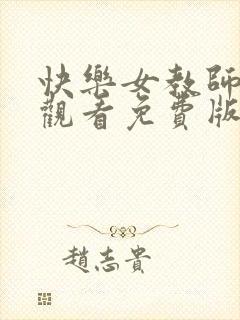 快樂女教師
觀看免費版
趙志貴